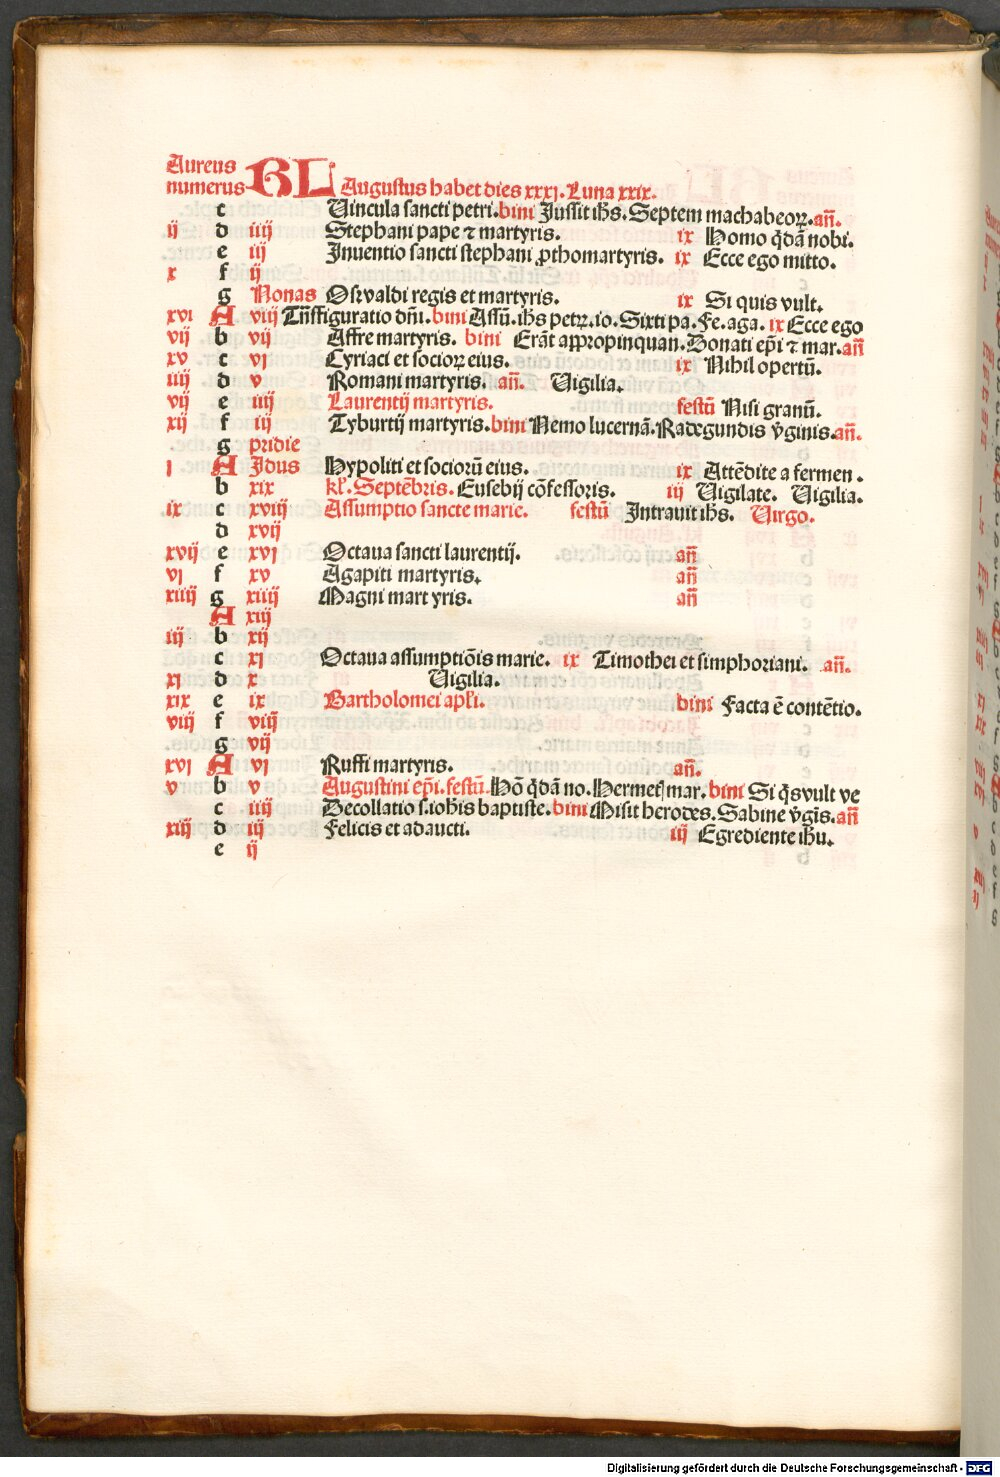 Aureus
numerus KL Augustus habet dies xxxj. Luna xxix.
c Uincula sancti petri. bini Jussit ihs̄. Septem machabeoꝝ. añ.
ij d iiij Stephani pape ⁊ martyris. ix Homo q̄dā nobi.
e iij Jnuentio sancti stephani ꝓthomartyris. ix Ecce ego mitto.
x f ij
g Nonas Osvaldi regis et martyris. ix Si quis vult.
xvi A viij Trāsfiguratio dn̄i. bini Assū. ihs̄ petꝝ. io. Sixti pa. Fe. aga. ix Ecce ego
vij b vij Affre martyris. bini Erāt appropinquan. Donati ep̄i ⁊ mar. añ
xv c vj Cyriaci et socioꝝ eius. ix Nihil opertū.
iiij d v Romani martyris. añ. Uigilia.
vij e iiij Laurentij martyris. festū Nisi granū.
xij f iij Tyburtij martyris. bini Nemo lucernā. Radegundis v̄ginis. añ.
g pridie
j A Jdus Hypoliti et sociorū eius. ix Attēdite a fermen.
b xix kl̄. Septēbris. Eusebij cōfessoris. iij Uigilate. Uigilia.
ix c xviij Assumptio sancte marie. festū Jntrauit ihs̄. Uirgo.
d xvij
xvij e xvj Octaua sancti laurentij. añ
vj f xv Agapiti martyris. añ
xiiij g xiiij Magni mart yris. añ
A xiij
iij b xij
c xj Octaua assumptiōis marie. ix Timothei et simphoriani. añ.
xj d x Uigilia.
xix e ix Bartholomei apl̄i. bini Facta ē contētio.
viij f viij
g vij
xvj A vj Ruffi martyris. añ.
v b v Augustini ep̄i. festū. Hō q̄dā no. Hermes mar. bini Si q̄s vult ve
c iiij Decollatio s. ioh̄is baptiste. bini Misit herodes. Sabine v̄gis. añ
xiij d iij Felicis et adaucti. iij Egrediente ih̄u.
e ij
Digitalisierung gefördert durch die Deutsche Forschungsgemeinschaft - DFG